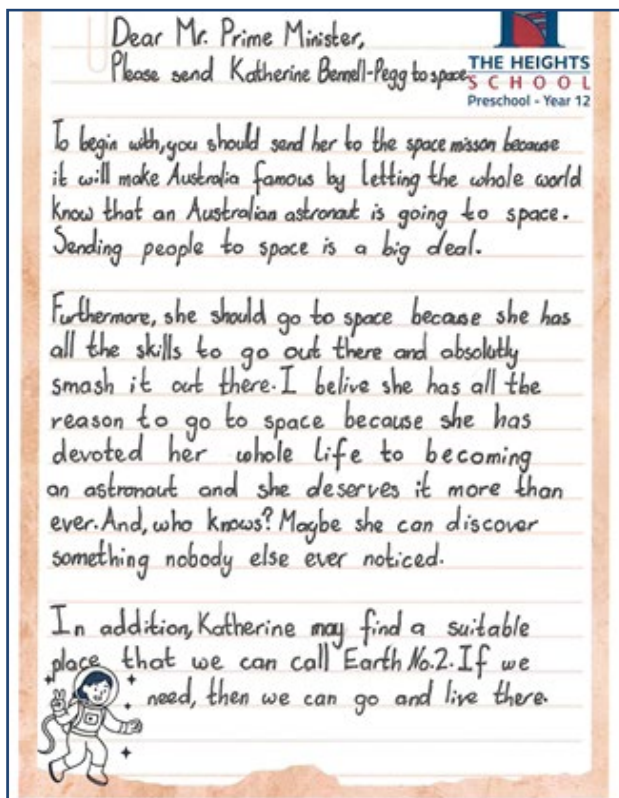 Dear Mr. Prime Minister,
Please send Katherine Bennell-Pegg to space.
THE HEIGHTS
SCHOOL
Preschool - Year 12
To begin with, you should send her to the space misson because
it will make Australia famous by letting the whole world
know that an Australian astronaut is going to space.
Sending people to space is a big deal.
Furthermore, she should go to space because she has
all the skills to go out there and absolutly
smash it out there. I belive she has all the
reason to go to space because she has
devoted her whole life to becoming
an astronaut and she deserves it more than
ever. And, who knows? Maybe she can discover
something nobody else ever noticed.
In addition, Katherine may find a suitable
place that we can call Earth No.2. If we
need, then we can go and live there.